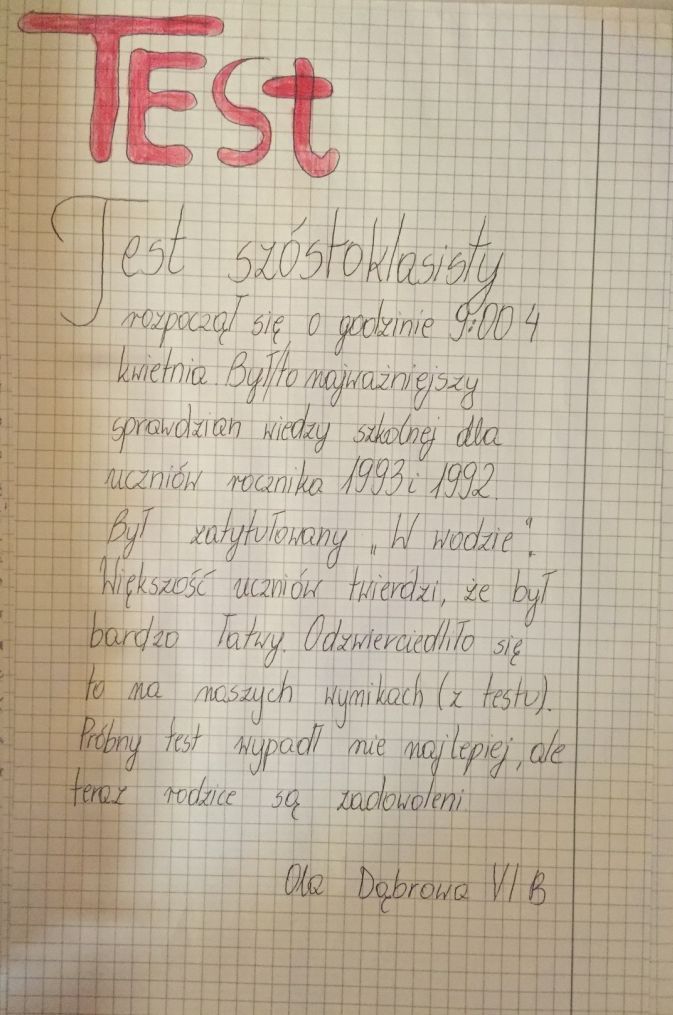 TEst
Test szóstoklasisty
rozpoczął się o godzinie 9:00 4
kwietnia. Był to najważniejszy
sprawdzian wiedzy szkolnej dla
uczniów rocznika 1993 i 1992.
Był zatytułowany „W wodzie".
Większość uczniów twierdzi, że był
bardzo łatwy. Odzwierciedliło się
to na naszych wynikach (z testu).
Próbny test wypadł nie najlepiej, ale
teraz rodzice są zadowoleni
Ola Dąbrowa VI B